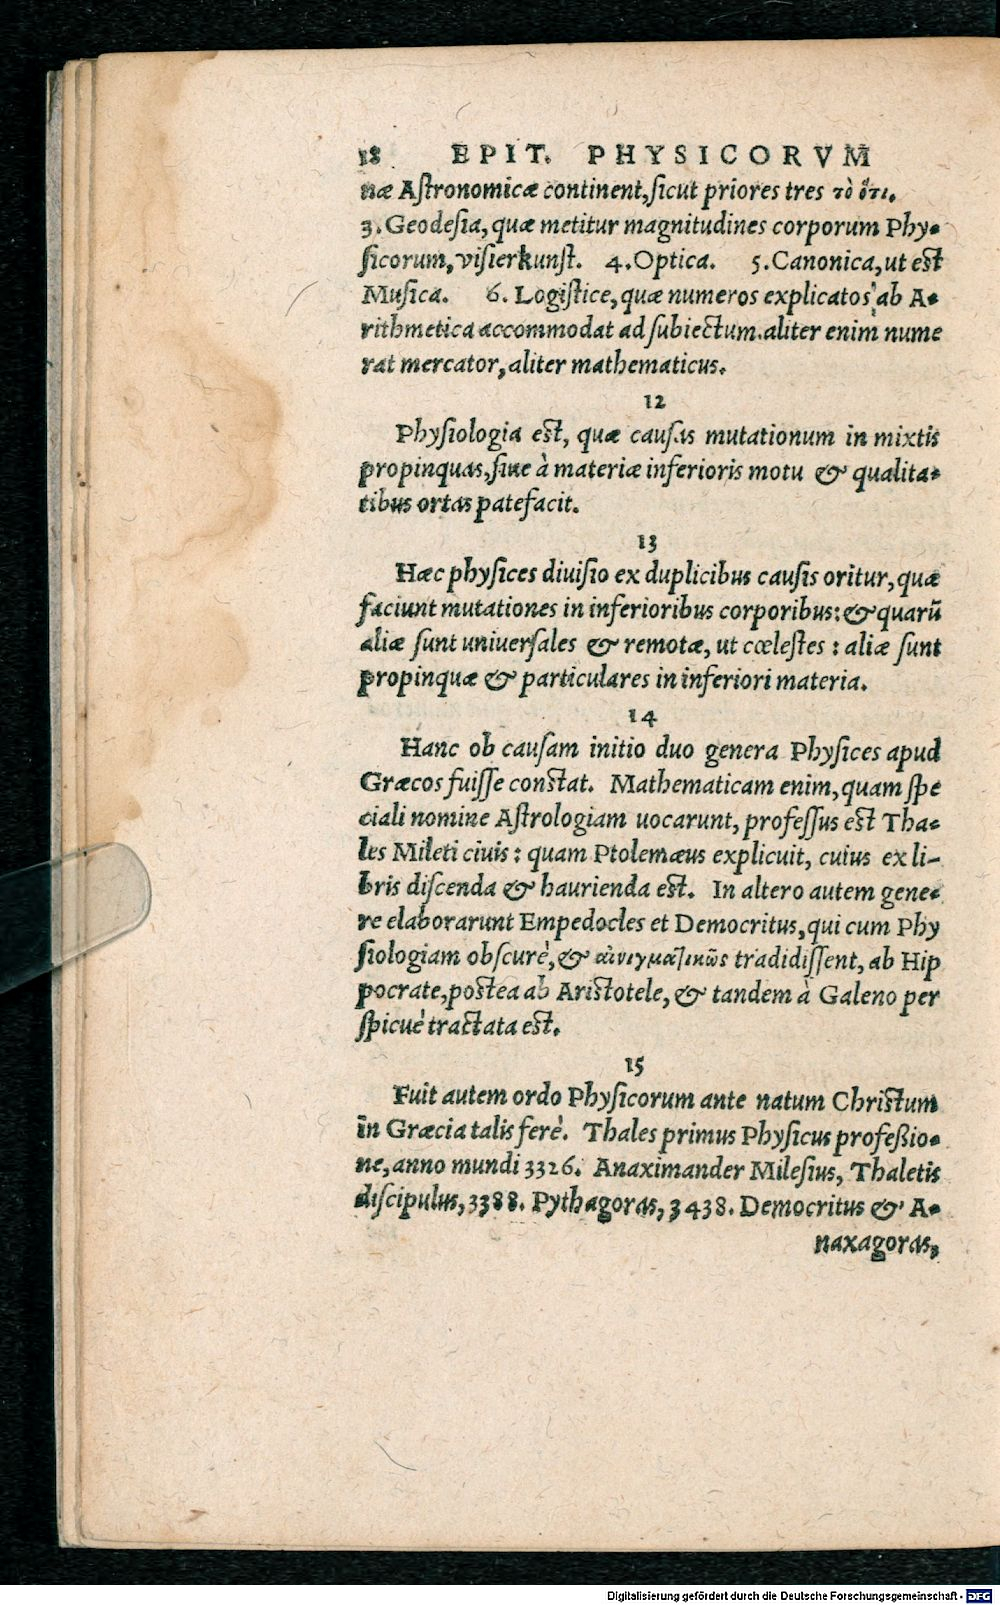 18 EPIT. PHYSICORVM
næ Astronomicæ continent, sicut priores tres τὸ ὅτι.
3. Geodesia, quæ metitur magnitudines corporum Phy-
sicorum, visierkunst. 4. Optica. 5. Canonica, ut est
Musica. 6. Logistice, quæ numeros explicatos ab A-
rithmetica accommodat ad subiectum. aliter enim nume
rat mercator, aliter mathematicus.
12
Physiologia est, quæ causas mutationum in mixtis
propinquas, siue à materiæ inferioris motu & qualita-
tibus ortas patefacit.
13
Hæc physices diuisio ex duplicibus causis oritur, quæ
faciunt mutationes in inferioribus corporibus: & quarū
aliæ sunt uniuersales & remotæ, ut cœlestes: aliæ sunt
propinquæ & particulares in inferiori materia.
14
Hanc ob causam initio duo genera Physices apud
Græcos fuisse constat. Mathematicam enim, quam spe
ciali nomine Astrologiam uocarunt, professus est Tha-
les Mileti ciuis: quam Ptolemæus explicuit, cuius ex li-
bris discenda & haurienda est. In altero autem gene-
re elaborarunt Empedocles et Democritus, qui cum Phy
siologiam obscurè, & αἰνιγματικῶς tradidissent, ab Hip
pocrate, postea ab Aristotele, & tandem à Galeno per
spicuè tractata est.
15
Fuit autem ordo Physicorum ante natum Christum
in Græcia talis ferè. Thales primus Physicus professio-
ne, anno mundi 3326. Anaximander Milesius, Thaletis
discipulus, 3388. Pythagoras, 3438. Democritus & A-
naxagoras,
Digitalisierung gefördert durch die Deutsche Forschungsgemeinschaft - DFG